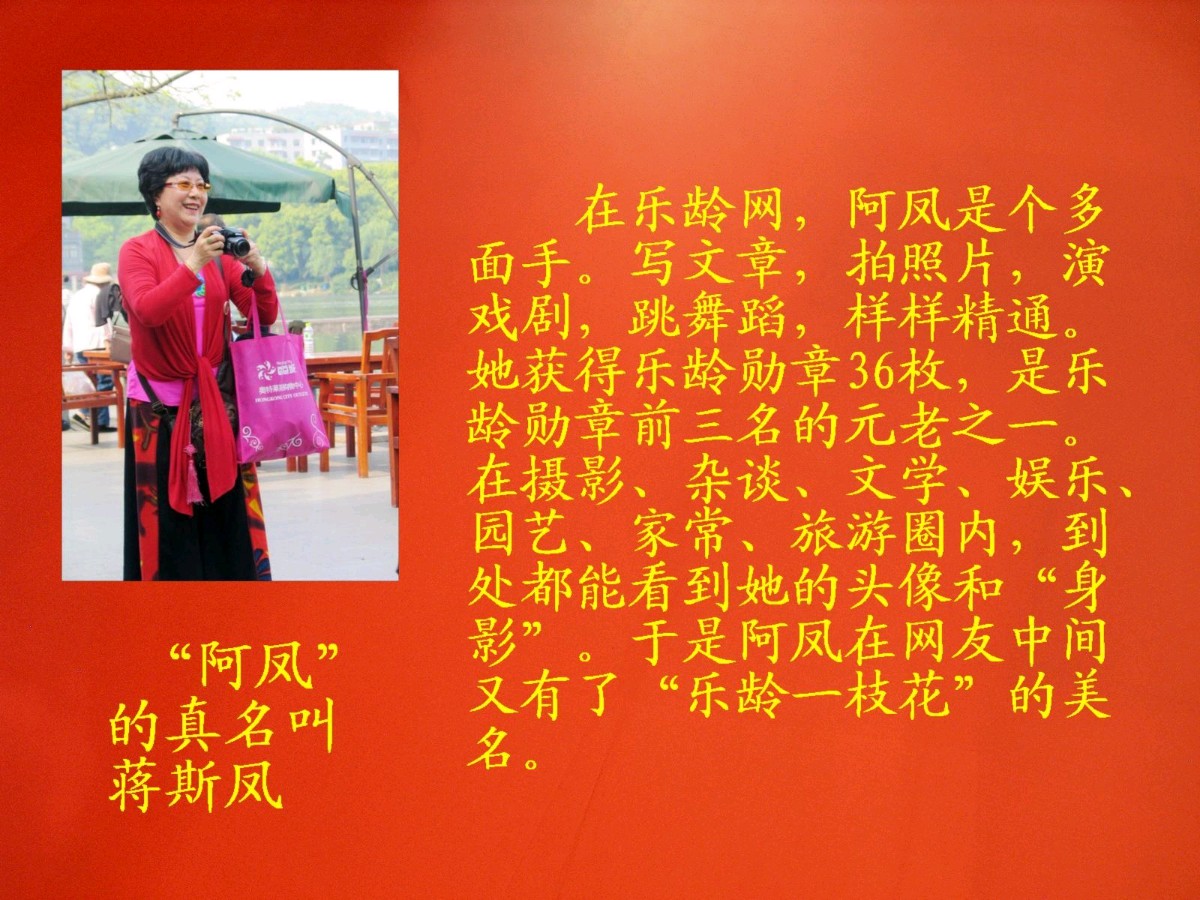 在乐龄网，阿凤是个多
面手。写文章，拍照片，演
戏剧，跳舞蹈，样样精通。
她获得乐龄勋章36枚，是乐
龄勋章前三名的元老之一。
在摄影、杂谈、文学、娱乐、
园艺、家常、旅游圈内，到
处都能看到她的头像和“身
影”。于是阿凤在网友中间
又有了“乐龄一枝花”的美
名。
“阿凤”
的真名叫
蒋斯凤